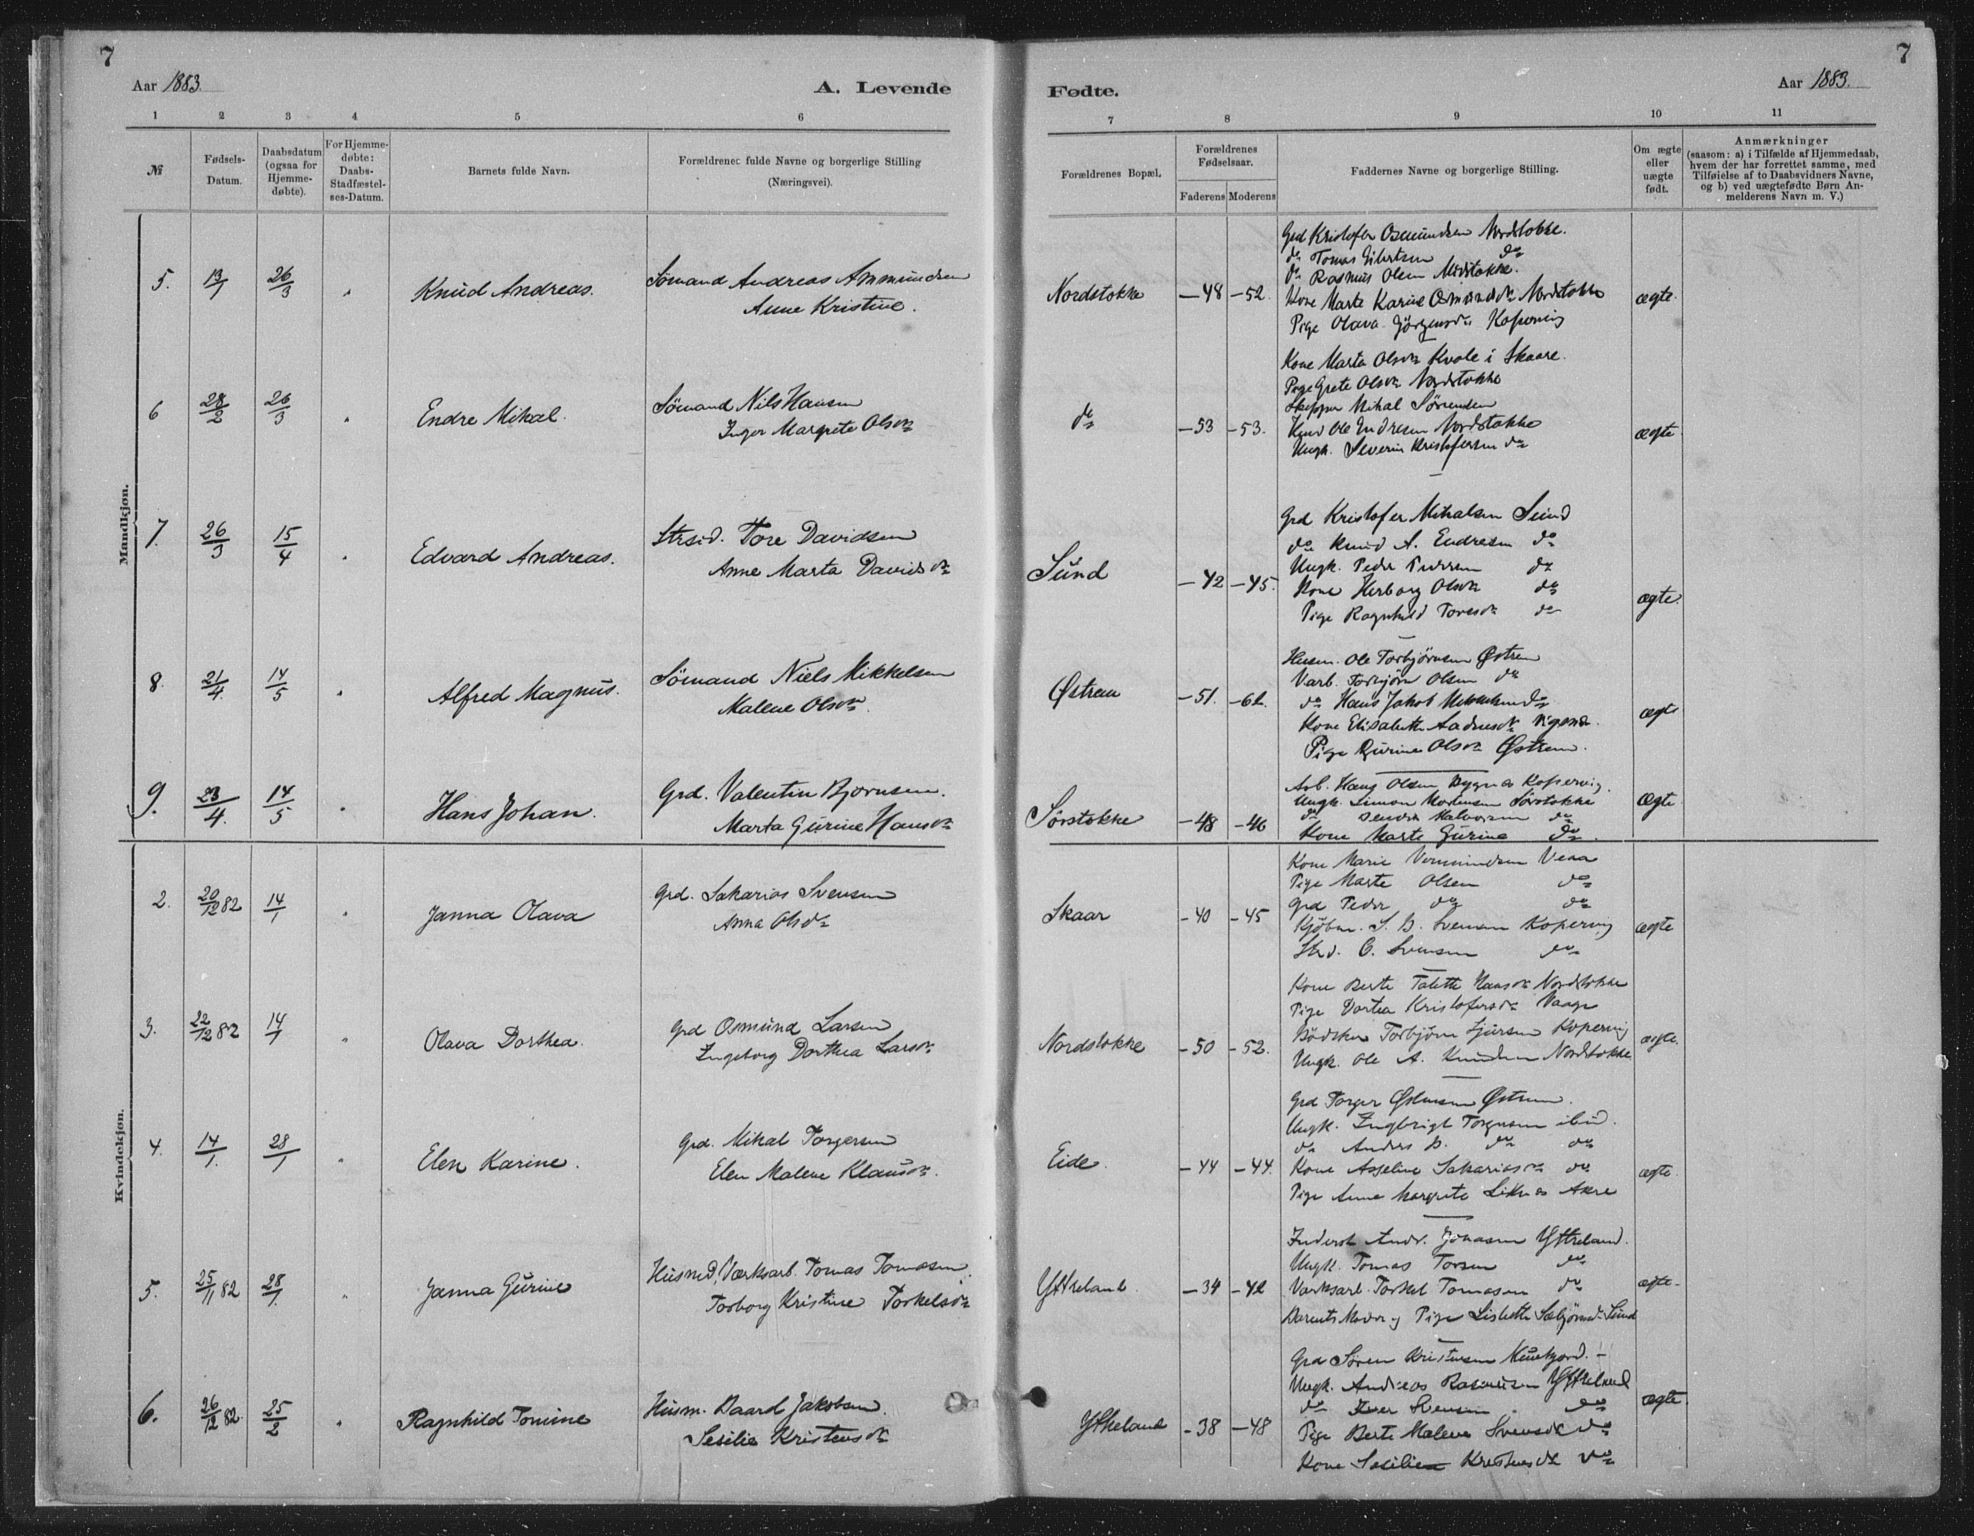 7
Aar 1883.
A. Levende
1 2 3 4 5 6
№
Fødsels-
Datum.
Daabsdatum
(ogsaa for
Hjemme-
døbte).
For Hjemme-
døbte:
Daabs-
Stadfæstel-
ses-Datum.
Barnets fulde Navn.
Forældrenes fulde Navne og borgerlige Stilling
(Næringsvei).
Mandkjøn.
5. 13/1 26/3 " Knud Andreas.
Sømand Andreas Ammundsen
Anne Kristine.
6 28/2 26/3 " Endre Mikal.
Sømand Nils Hansen
Inger Margrete Olsdr
7. 26/3 15/4 " Edvard Andreas.
Strsid. Tore Davidsen
Anne Marta Davidsdr
8. 21/4. 14/5 " Alfred Magnus.
Sømand Niels Mikkelsen
Malene Olsdr.
9. 23/4. 14/5 " Hans Johan.
Grd. Valentin Bjørnsen.
Marta Gurine Hansdr
Kvindekjøn.
2. 20/12 82 14/1 " Janna Olava
Grd. Sakarias Svensen
Anna Olsdr
3. 22/12 82 14/1 " Olava Dorthea.
Grd Osmund Larsen
Ingeborg Dorthea Larsdr
4. 14/1. 28/1 " Elen Karine.
Grd. Mikal Torgersen
Elen Malene Klausdr.
5. 25/11 82 28/1. " Janna Gurine
Husmd, Værksarb. Tomas Tomasen.
Torborg Kristine Torkelsdr
6. 26/12 82. 25/2 " Ragnhild Tomine
Husm. Baard Jakobsen.
Sesilie Kristensdr
7
Fødte.
Aar 1883.
7 8 9 10 11
Forældrenes Bopæl.
Forældrenes
Fødselsaar.
Faderens Moderens
Faddernes Navne og borgerlige Stilling.
Om ægte
eller
uægte
født.
Anmærkninger
(saasom: a) i Tilfælde af Hjemmedaab,
hvem der har forrettet samme, med
Tilføielse af to Daabsvidners Navne,
og b) ved uægtefødte Børn An-
melderens Navn m. V.)
Nordstokke —48 —52. ægte.
Grd Kristofer Osmundsen Nordstokke.
do Tomas Eilertsen do
do Rasmus Olsen Midstokke.
Kone Marte Karine Osmundsdr Nordstokke
Pige Olava Jörgensdr Kopervig
do —53 —53. ægte
Kone Marta Olsdr Kvale i Skaare.
Pige Grete Olsdr Nordstokke
Skipper Mikal Sörensen
Ole Endresen Nordstokke
Ungk. Severin Kristofersen do
Sund —42 —45. ægte.
Grd Kristofer Mikalsen Sund
do Knud A. Endresen do
Ungk. Peder Pedersen do
Kone Herborg Olsdr do
Pige Ragnhild Toresdr do
Østrem —51. —62. ægte
Husm. Ole Torbjørnsen Østrem
Varb. Torbjørn Olsen do
do Hans Jakob Mikkelsen do
Kone Elisabeth
Pige Gurine Olsdr Østrem.
Sørstokke —48 —46 ægte
Arb. Hans Olsen Bygnes Kopervig.
Ungk. Simon Mortensen Sørstokke
do do
Kone Marte Gurine do.
Skaar —40 —45 ægte
Kone Marie Veaa
Pige Marte Olsen do
Grd Peder do do
Kjøbm. S. B. Svensen Kopervig
O. Svensen do
Nordstokke —50 —52. ægte.
Kone Berte Talette Hansdr Nordstokke
Pige Kristofersdr Vaage
Bødker Torbjørn Kopervig
Ungk. Ole A. Knudsen Nordstokke
Eide. —44 —44. ægte
Grd Torger Østrem.
Ungk. Ingbrigt Torgersen ibid.
do Anders B. do do
Kone Asseline Sakariasdr do
Pige Anne Margrete Liknes Akre
Yttreland. —34 —42 ægte
Inderst Andr. Jonasen Yttreland.
Ungk. Tomas Torsen do
Værksarb. Torkel Tomasen do
Barnets Moder og Pige Lisbeth Sund
Yttreland —38 —48 ægte.
Grd Søren Kristensen
Ungk. Andreas Rasmussen Yttreland
do Iver Svensen do
Pige Berte Malene Svensdr do
Kone Sesilie Kristensdr do